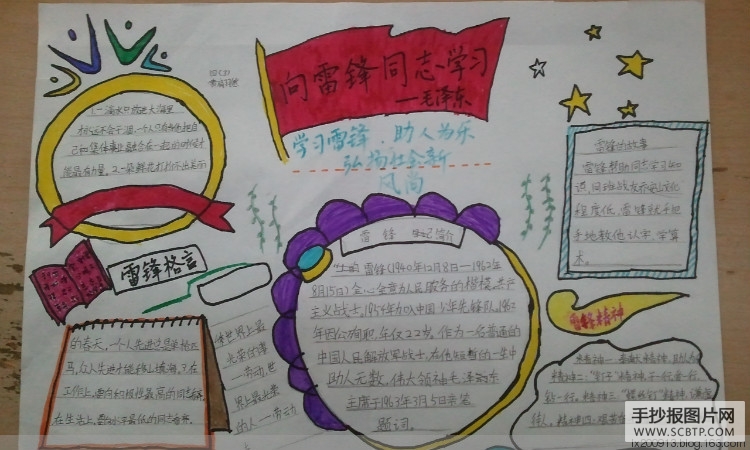 四(3)
向雷锋同志学习
——毛泽东
学习雷锋、助人为乐
弘扬社会新
风尚
1.一滴水只有放进大海里
才永远不会干涸，一个人只有当他把自
己和集体事业融合在一起的时候才
能最有力量。2.一朵鲜花打扮不出美丽
雷锋格言
的春天，一个人先进总是单枪匹
马，众人先进才能移山填海。3.在
工作上，要向积极性最高的同志看齐，
在生活上，要向水平最低的同志看齐。
世界上最
光荣的事
——劳动。世
界上最光荣
的人——劳动
雷锋 生记简介
雷锋(1940年12月8日—1962年
8月15日)全心全意为人民服务的楷模，共产
主义战士，1954年加入中国少年先锋队，1962
年因公殉职，年仅22岁。作为一名普通的
中国人民解放军战士，在他短暂的一生中
助人无数，伟大领袖毛泽东
主席于1963年3月5日亲笔
题词。
雷锋的故事
雷锋帮助同志学习知
识，同班战友乔安山文化
程度低，雷锋就手把
手地教他认字、学算
术。
雷锋精神
精神一：奉献精神，助人为
精神二："钉子"精神，干一行爱一行，
钻一行。精神三：
待人。精神四：艰苦
手抄报图片网
WWW.SCBTP.COM
lx200913.blog.163.com